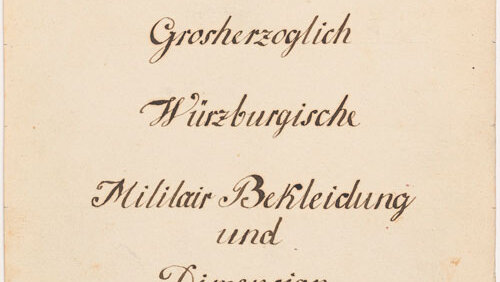 Grosherzoglich
Würzburgische
Militair Bekleidung
und
Dimension